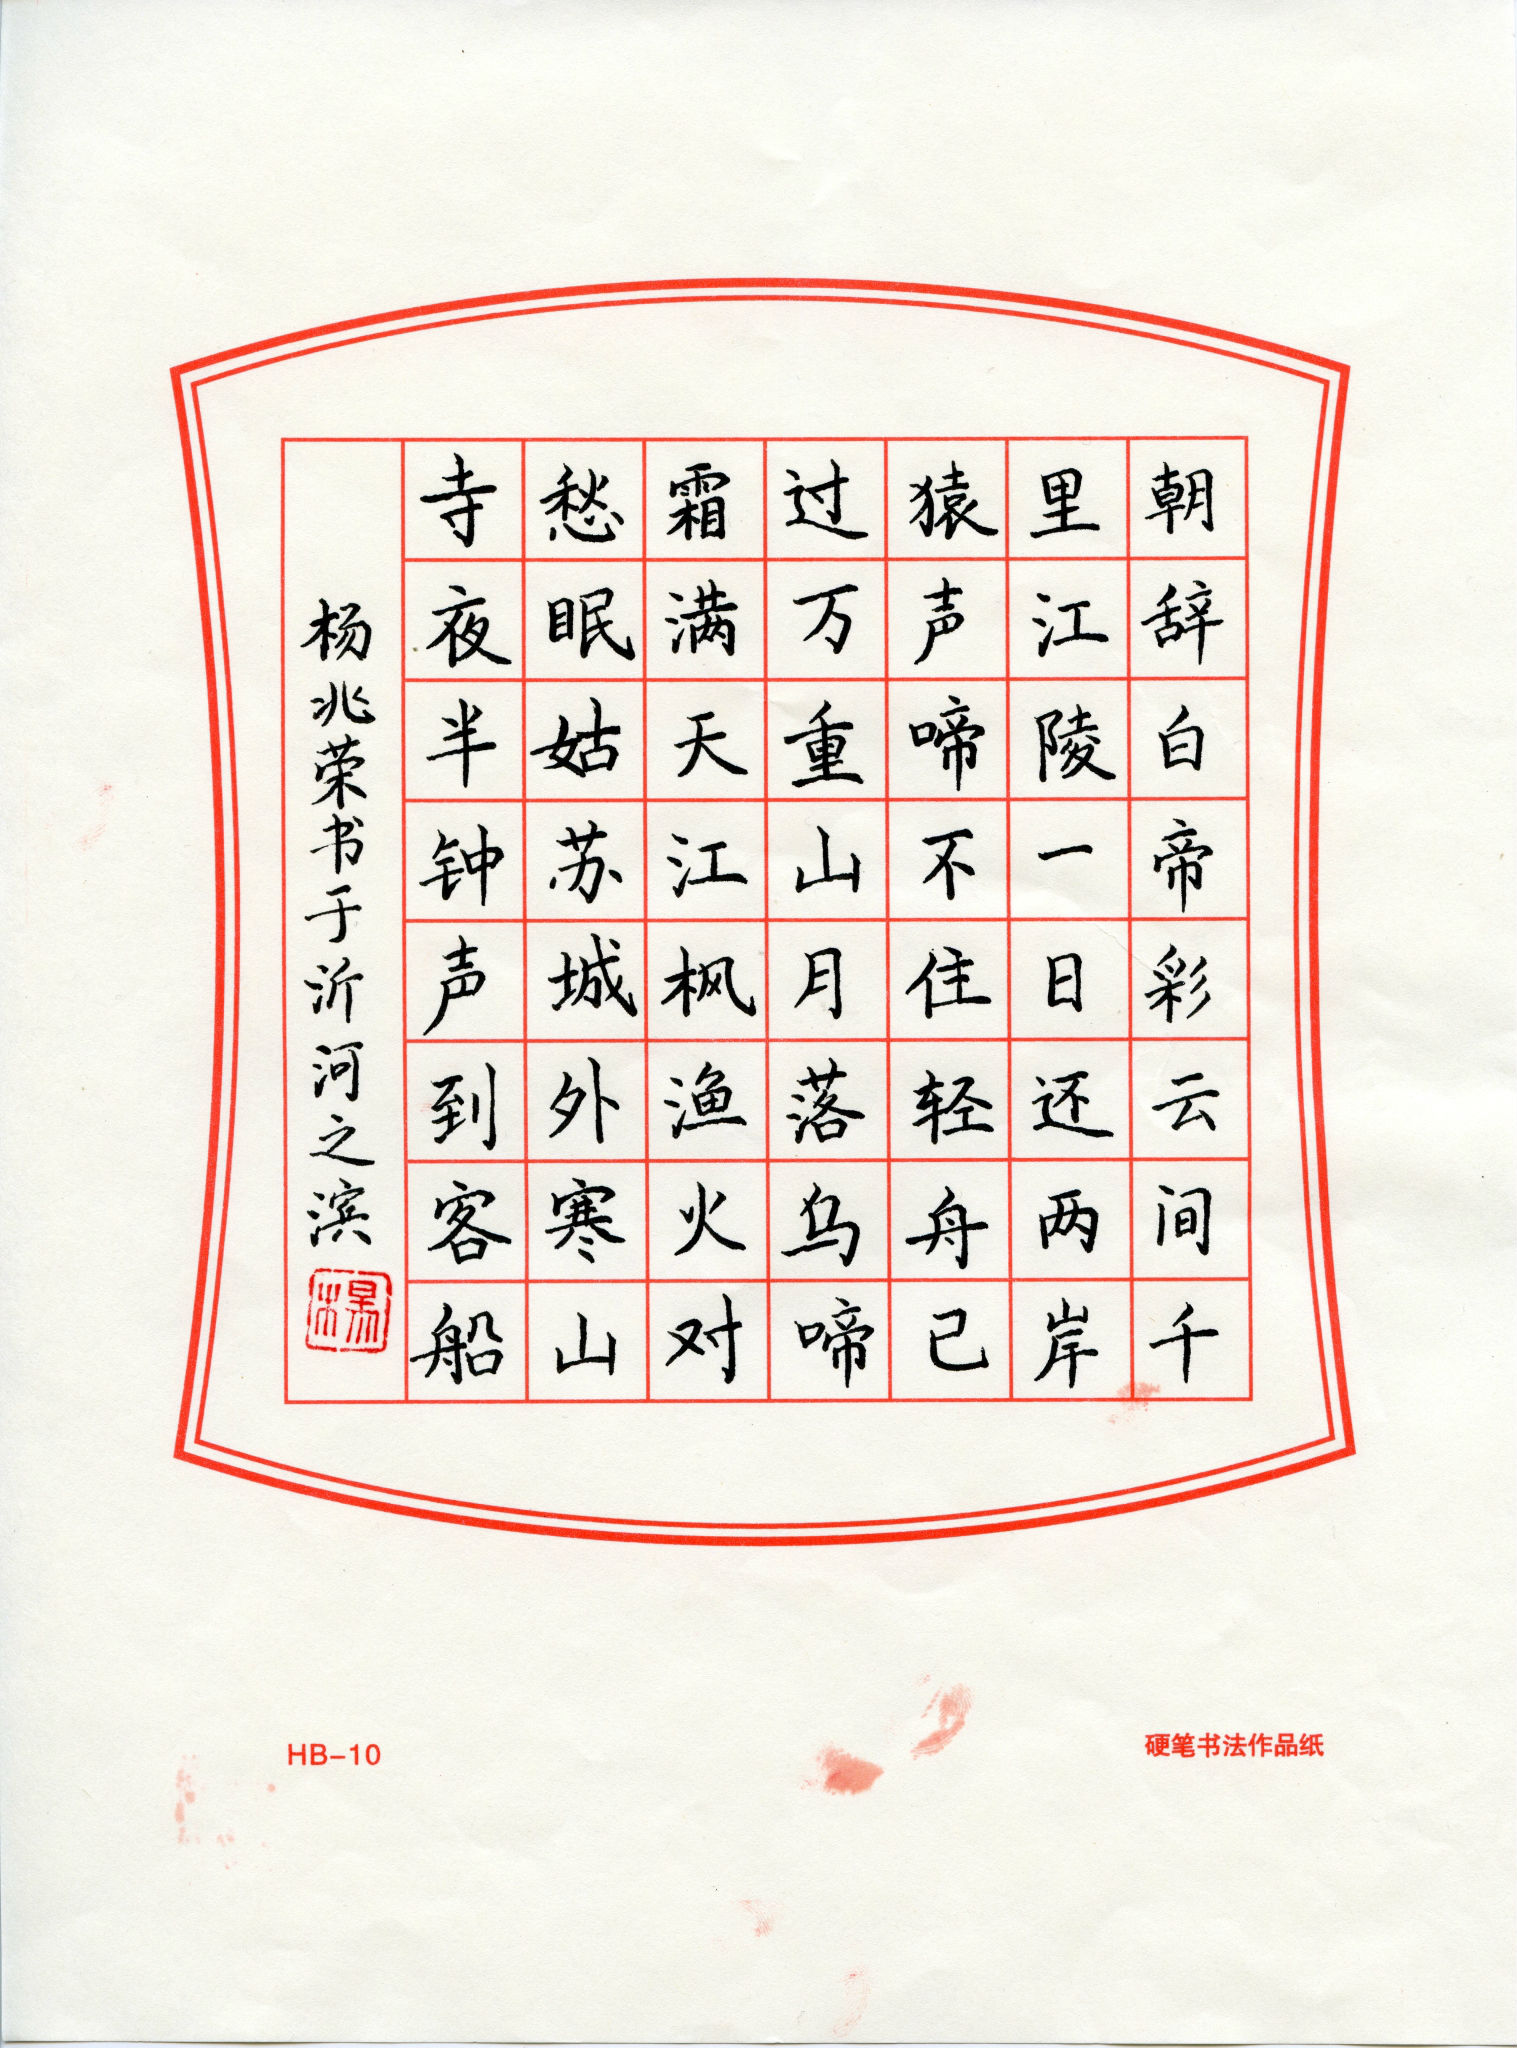 朝辞白帝彩云间千
里江陵一日还两岸
猿声啼不住轻舟已
过万重山月落乌啼
霜满天江枫渔火对
愁眠姑苏城外寒山
寺夜半钟声到客船
杨兆荣书于沂河之滨
HB-10
硬笔书法作品纸